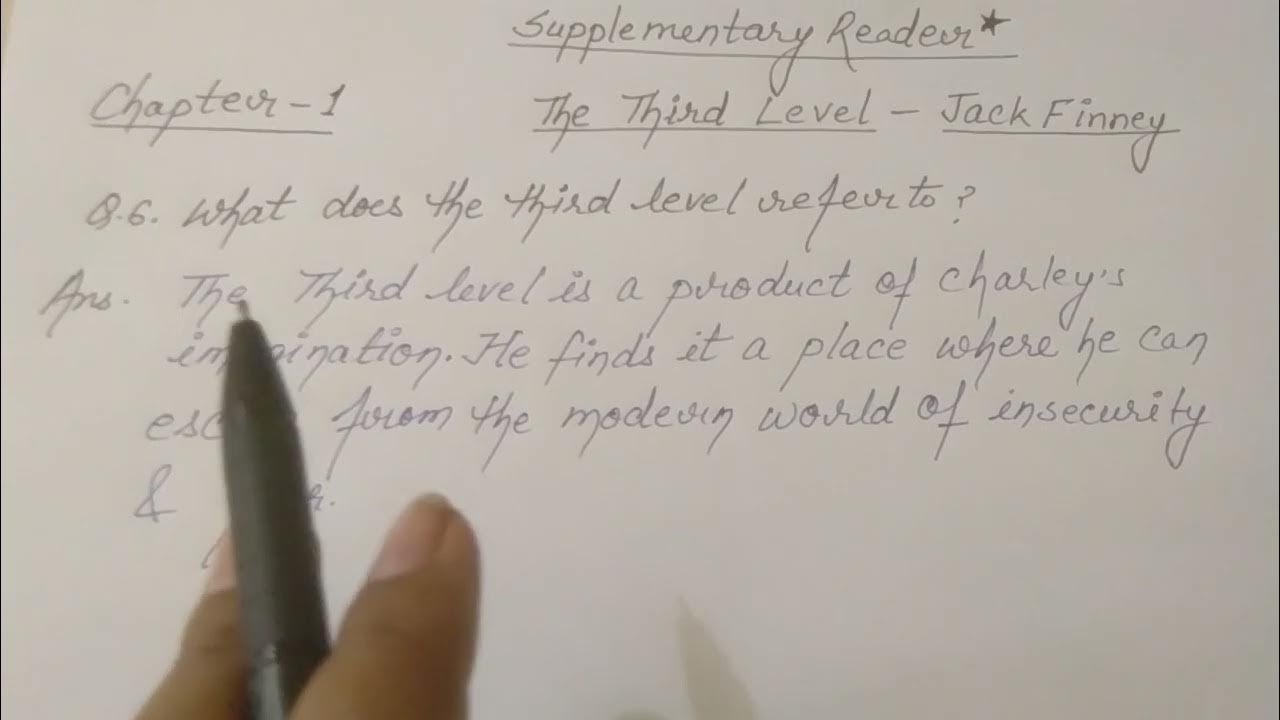 Supplementary Reader*
Chapter-1
The Third Level - Jack Finney
Q.6. What does the third level refer to?
Ans. The Third level is a product of Charley's
imagination. He finds it a place where he can
escape from the modern world of insecurity
&